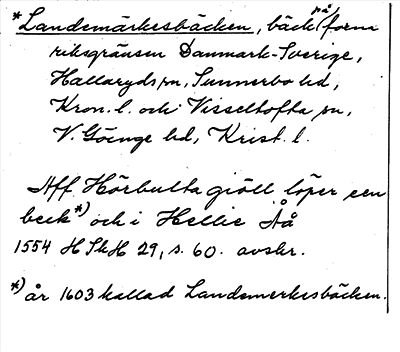 *Landsmärkesbäcken, bäck på forna
riksgränsen Danmark-Sverige,
Hallaryds sn, Sunnerbo hd,
Kron. l. och Visseltofta sn,
V. Göinge hd, Krist. l.
Aff Hörbulta giöll löper een
beck *) och i Hellie Åå
1554 HSkH 29, s. 60. avskr.
*) år 1603 kallad Landsmerkesbäcken.